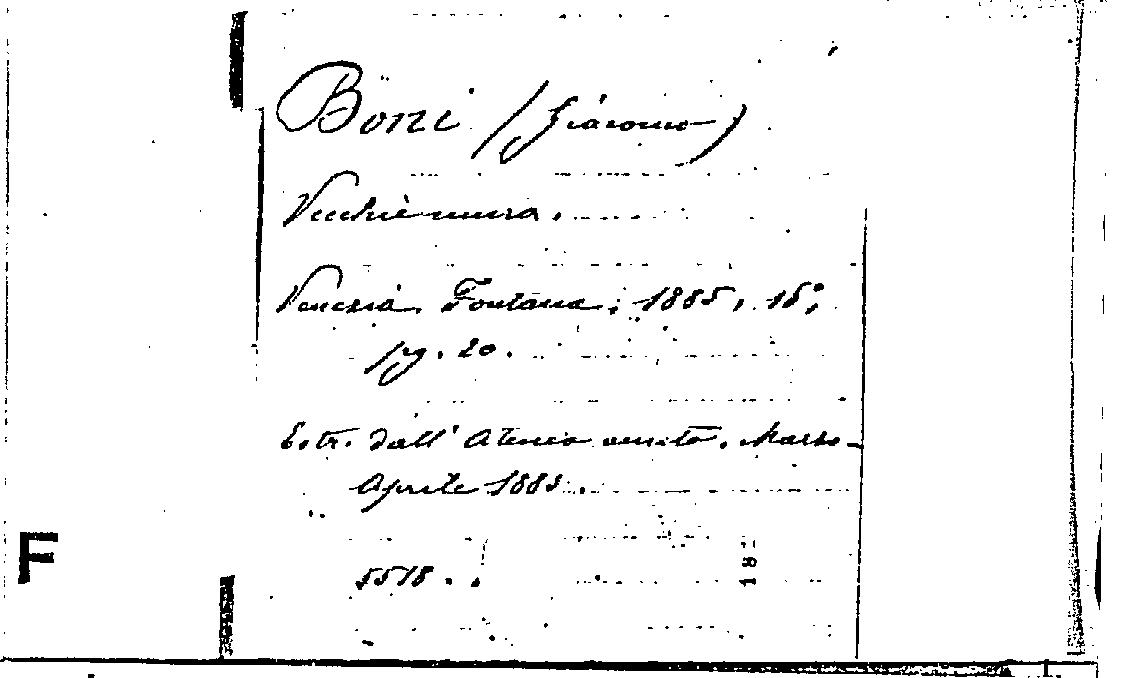 Boni (Giácomo)
Vecchie mura.
Venezia, Fontana, 1885, 16°,
pg. 20.
Estr. dall' Ateneo veneto. Marzo-
Aprile 1885.
5518.
F
18